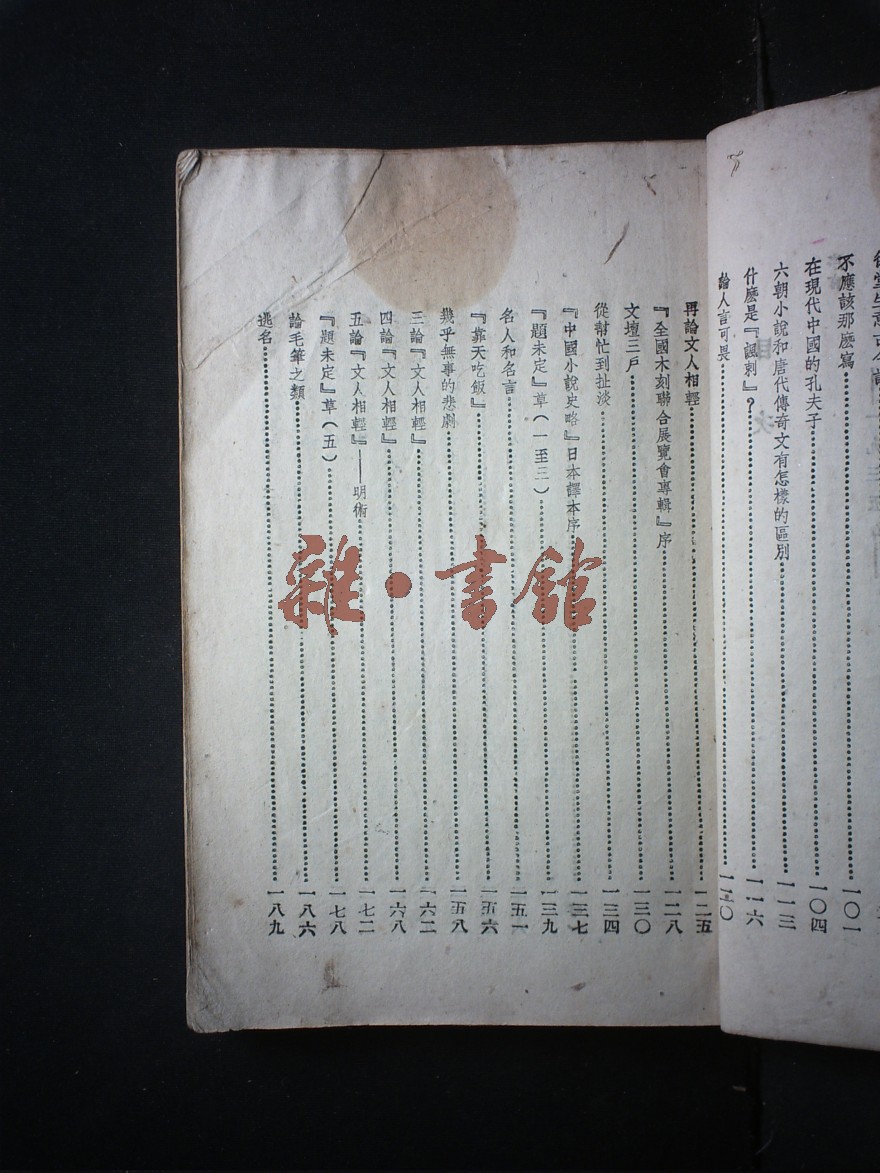 不應該那麽寫⋯⋯一〇一
在現代中國的孔夫子⋯⋯一〇四
六朝小說和唐代傳奇文有怎樣的區別⋯⋯一一三
什麽是『諷刺』？⋯⋯一一六
論人言可畏⋯⋯一二〇
再論文人相輕⋯⋯一二五
『全國木刻聯合展覽會專輯』序⋯⋯一二八
文壇三戶⋯⋯一三〇
從幫忙到扯淡⋯⋯一三四
『中國小說史略』日本譯本序⋯⋯一三七
『題未定』草（一至三）⋯⋯一三九
名人和名言⋯⋯一五一
『靠天吃飯』⋯⋯一五六
幾乎無事的悲劇⋯⋯一五八
三論『文人相輕』⋯⋯一六二
四論『文人相輕』⋯⋯一六八
五論『文人相輕』——明術⋯⋯一七二
『題未定』草（五）⋯⋯一七八
論毛筆之類⋯⋯一八六
逃名⋯⋯一八九
雜·書館